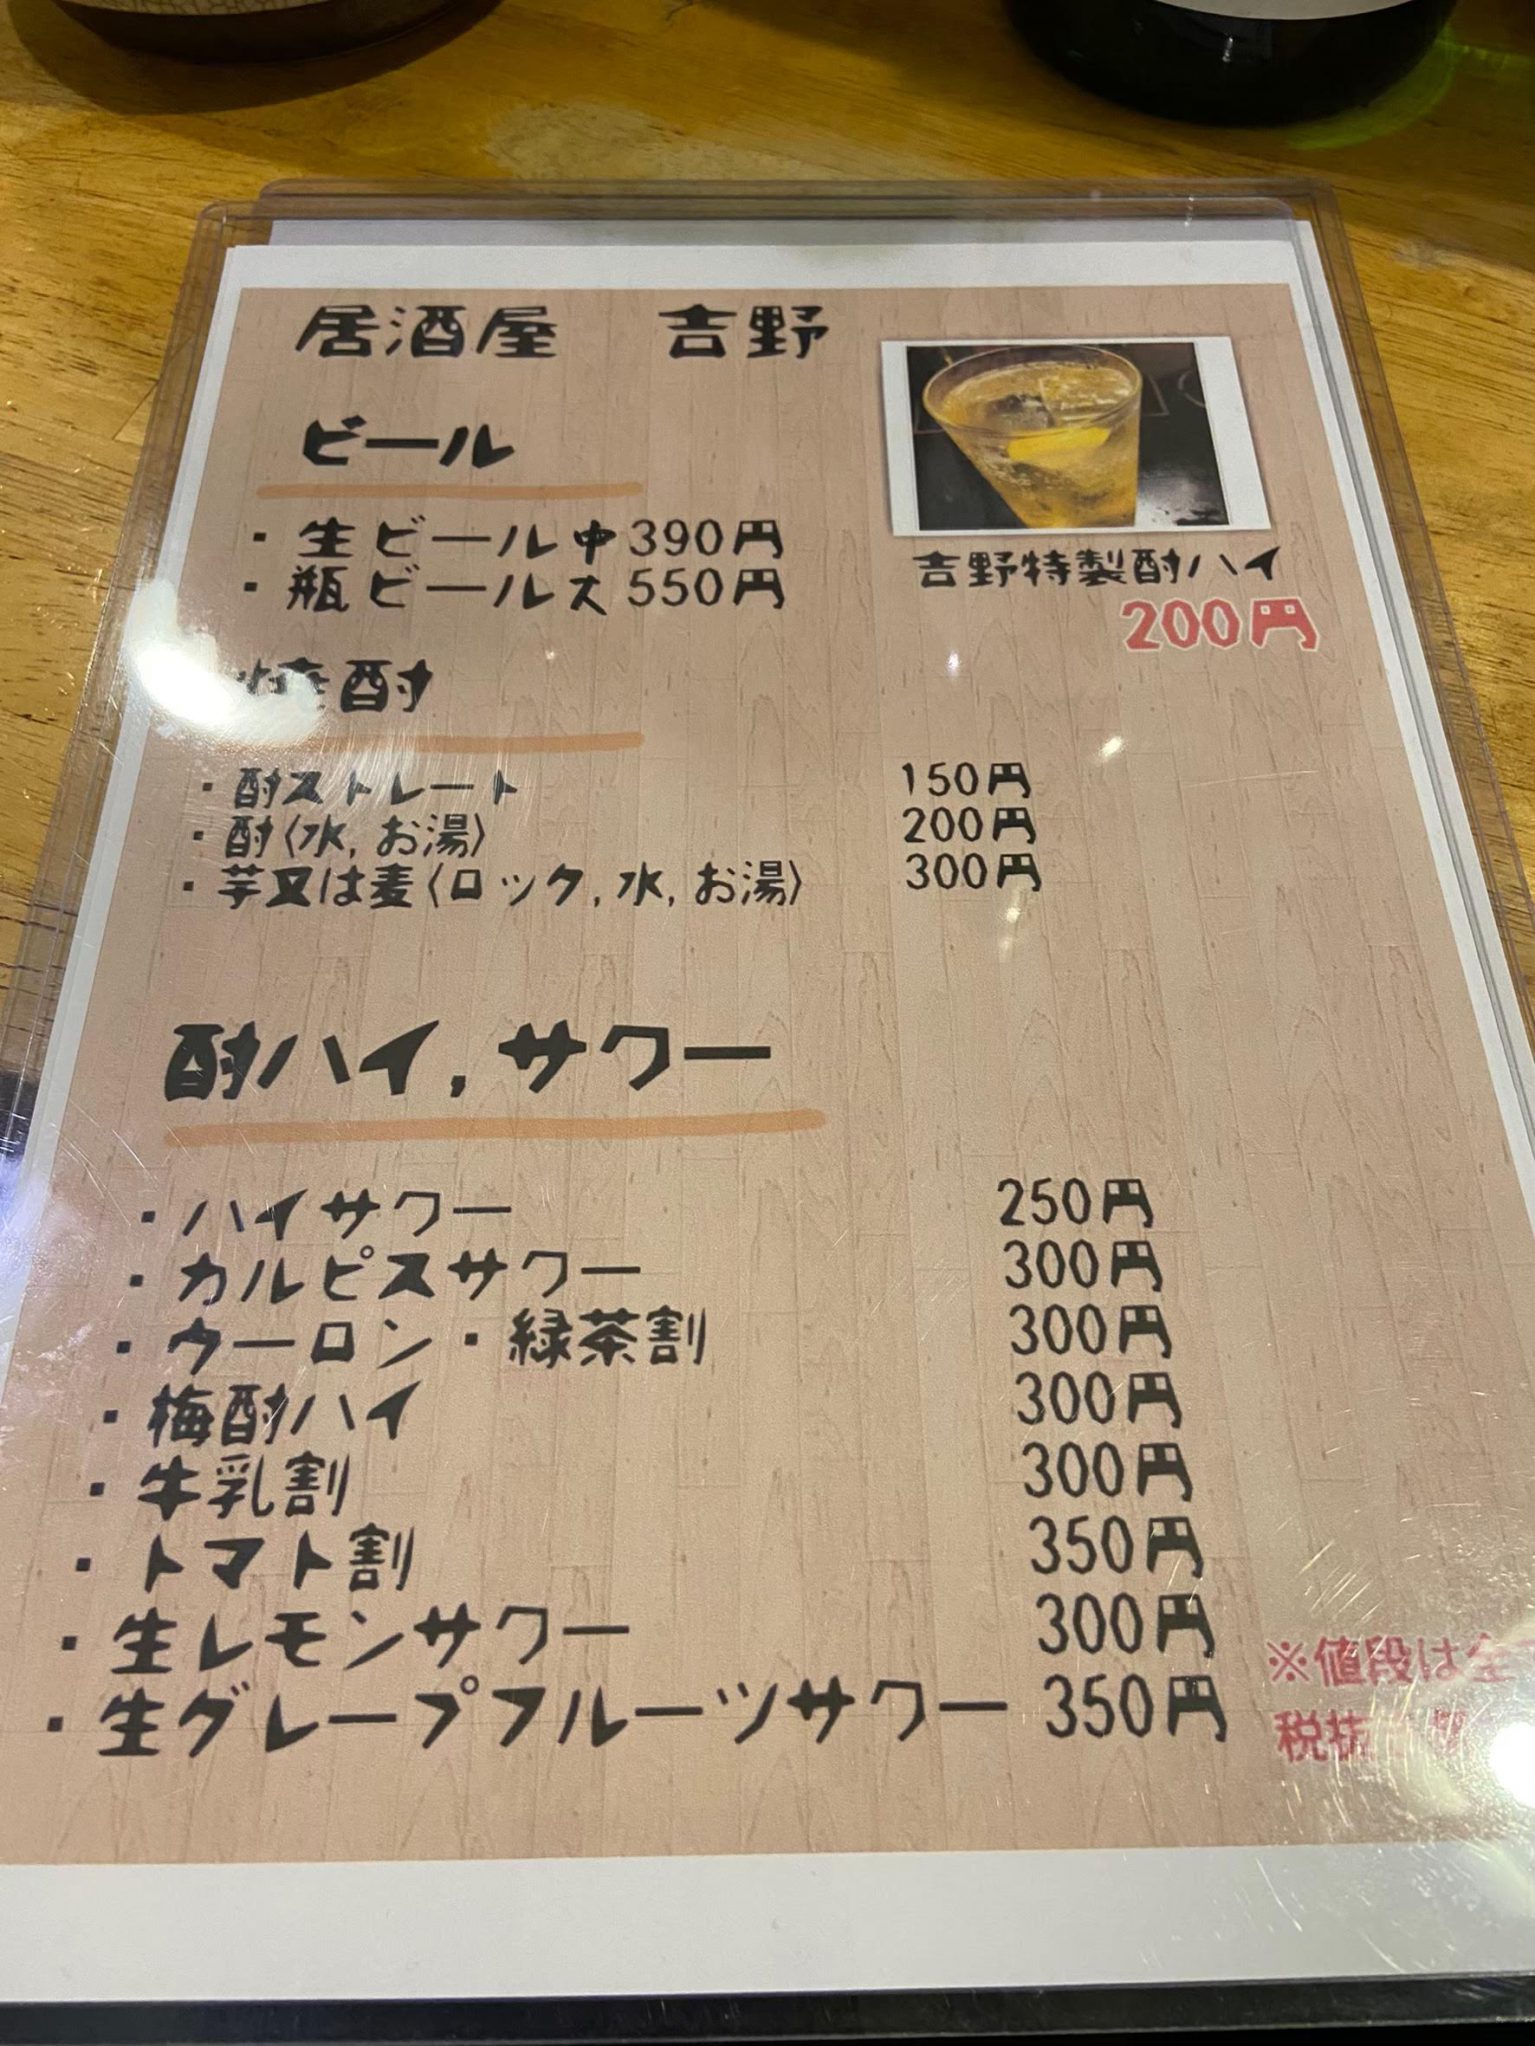 居酒屋 吉野
ビール
・生ビール中390円
・瓶ビール大550円
吉野特製酎ハイ
200円
焼酎
・酎ストレート 150円
・酎(水,お湯) 200円
・芋又は麦(ロック,水,お湯) 300円
酎ハイ,サワー
・ハイサワー 250円
・カルピスサワー 300円
・ウーロン・緑茶割 300円
・梅酎ハイ 300円
・牛乳割 300円
・トマト割 350円
・生レモンサワー 300円
・生グレープフルーツサワー 350円
※値段は全
税抜